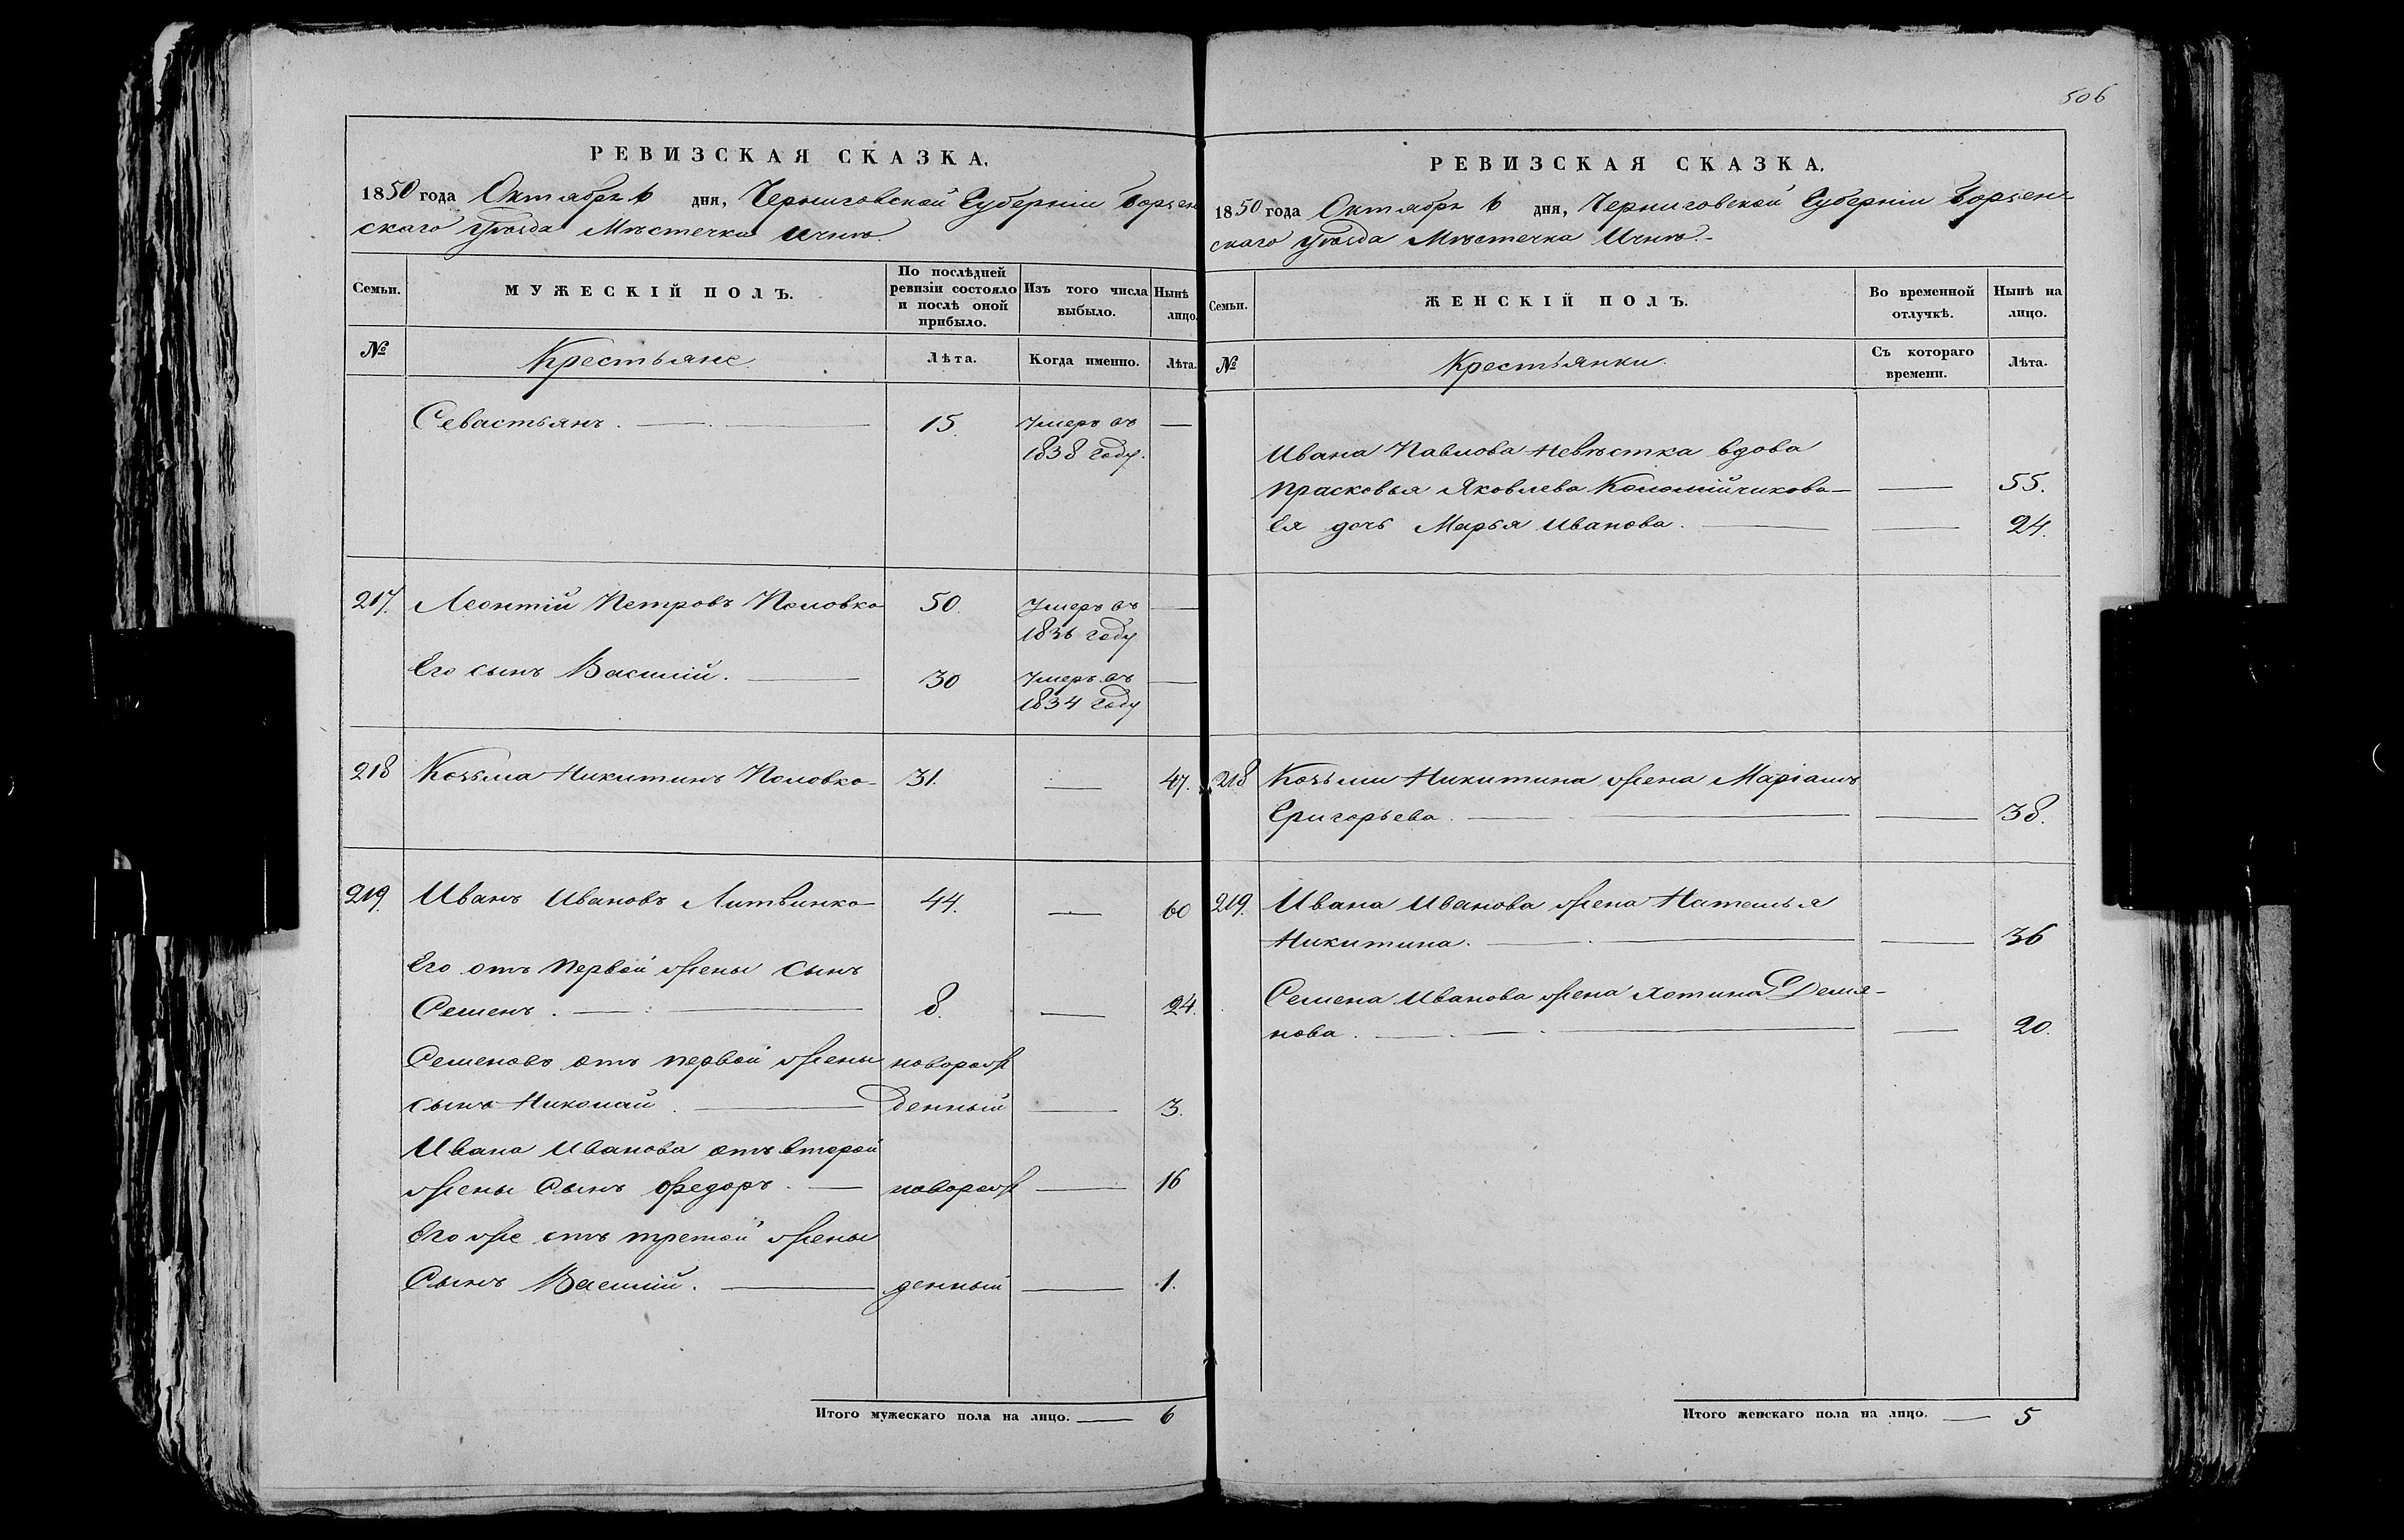 РЕВИЗСКАЯ СКАЗКА.
1850 года Октября 6 дня, Черниговской Губерніи Борзен
скаго Уѣзда Мѣстечка Ичнѣ.
Семьи.
МУЖЕСКІЙ ПОЛЪ.
По послѣдней ревизіи состояло и послѣ оной прибыло.
Изъ того числа выбыло.
Нынѣ лицо.
№
Крестьяне
Лѣта.
Когда именно.
Лѣта.
Севастьянъ. 15. Умеръ въ
1838 году.
217. Леонтій Петровъ Половко 50. Умеръ въ
1836 году
Его сынъ Василій. 30 Умеръ въ
1834 году
218 Козьма Никитинъ Половко 31. 47.
219. Иванъ Ивановъ Литвинко 44. 60
Его отъ первой жены сынъ
Семенъ. 8. 24.
Семеновъ отъ первой жены новорож
сынъ Николай денный 3.
Ивана Иванова отъ второй
жены Сынъ Федоръ. новорож 16
Его же отъ третей жены
Сынъ Василій. денный 1.
Итого мужескаго пола на лицо. 6
506
РЕВИЗСКАЯ СКАЗКА.
1850 года Октября 6 дня, Черниговской Губерніи Борзен-
скаго Уѣзда Мѣстечка Ичнѣ.
Семьи.
ЖЕНСКІЙ ПОЛЪ.
Во временной отлучкѣ.
Нынѣ на лицо.
№
Крестьянки.
Съ котораго времени.
Лѣта.
Ивана Павлова невѣстка вдова
Прасковья Яковлева Коломійчикова 55.
Ея дочь Марья Иванова. 24.
218 Козьми Никитина жена Маріамъ
Григорьева. 38.
219. Ивана Иванова жена Наталья
Никитина. 36
Семена Иванова жена Хотина Демя-
нова. 20.
Итого женскаго пола на лицо. 5